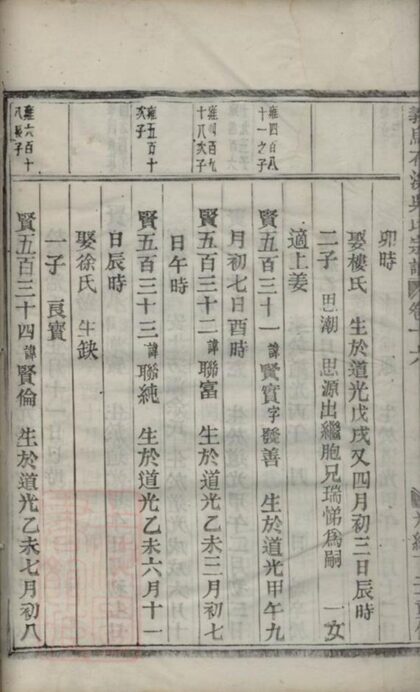 卯時
娶樓氏 生於道光戊戌又四月初三日辰時
二子 思潮 思源出繼胞兄瑞悌爲嗣 一女
適上姜
雍四百八
十一之子
賢五百三十一諱賢實字發善 生於道光甲午九
月初七日酉時
雍
十八次子
賢五百三十二諱聯富 生於道光乙未三月初七
日午時
雍五百十
次子
賢五百三十三諱聯純 生於道光乙未六月十一
日辰時
娶徐氏 生缺
一子 良寶
雍六百十
八長子
賢五百三十四諱賢倫 生於道光乙未七月初八